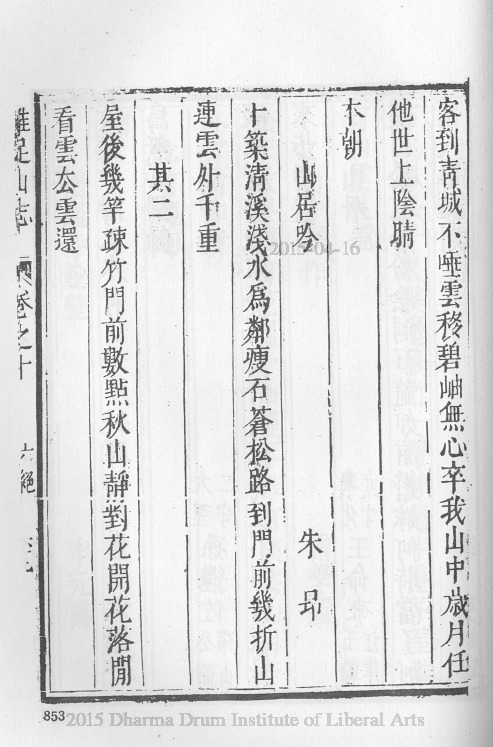 客到青城不疑雲移碧岫無心卒我山中歲月任
他世上陰晴
本朝
山居吟
朱昂
卜築清溪淺水為鄰瘦石蒼松路到門前幾折山
連雲外千重
其二
屋後幾竿疎竹門前數點秋山靜對花開花落閒
看雲去雲還
雞足山志
卷之十
六絕
853
2015-04-16
2015 Dharma Drum Institute of Liberal Arts